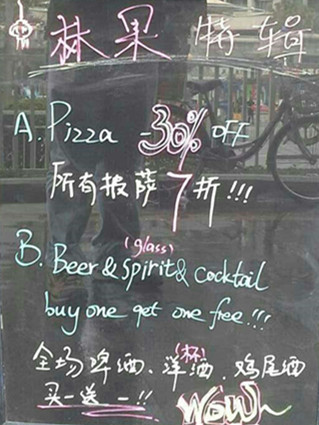 林果 特辑
A. Pizza -30% OFF
所有披萨7折!!!
(glass)
B. Beer & Spirit & cocktail
buy one get one free!!!
(杯)
全场啤酒、洋酒、鸡尾酒
买一送一!!
WOW